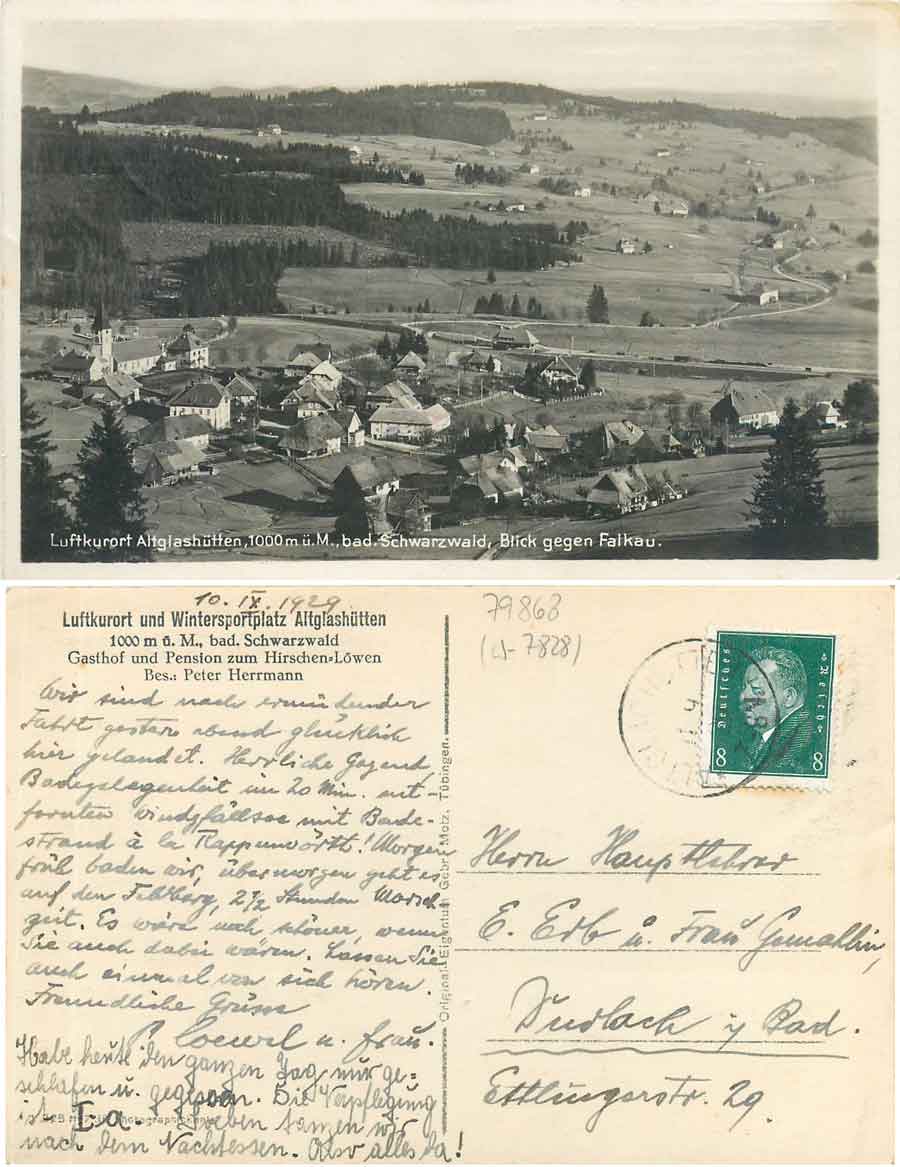 Luftkurort Altglashütten, 1000 m ü. M., bad. Schwarzwald, Blick gegen Falkau.
10. IX. 1929
Luftkurort und Wintersportplatz Altglashütten
1000 m ü. M., bad. Schwarzwald
Gasthof und Pension zum Hirschen-Löwen
Bes.: Peter Herrmann
Wir sind nach ermüdender
Fahrt gestern abend glücklich
hier gelandet. Herrliche Gegend,
Badegelegenheit im 20 Min. ent-
fernten Windgfällsee mit Bade-
strand à la Rappenwörth! Morgen
früh baden wir, übermorgen geht es
auf den Feldberg, 2 1/2 Stunden Marsch
zeit. Es wäre noch schöner, wenn
Sie auch dabei wären. Lassen Sie
auch einmal von sich hören.
Freundliche Grüsse
u. Frau.
Habe heute den ganzen Tag nur ge-
schlafen u. gegessen. Die Verpflegung
ist Ia. Soeben tanzen wir
nach dem Nachtessen. Also alles da!
Original-Eigentum Gebr. Metz, Tübingen.
79868
Deutsches Reich
8 8
Herrn Hauptlehrer
E. Erb u. Frau Gemahlin,
Durlach i/ Bad.
Ettlingerstr. 29.